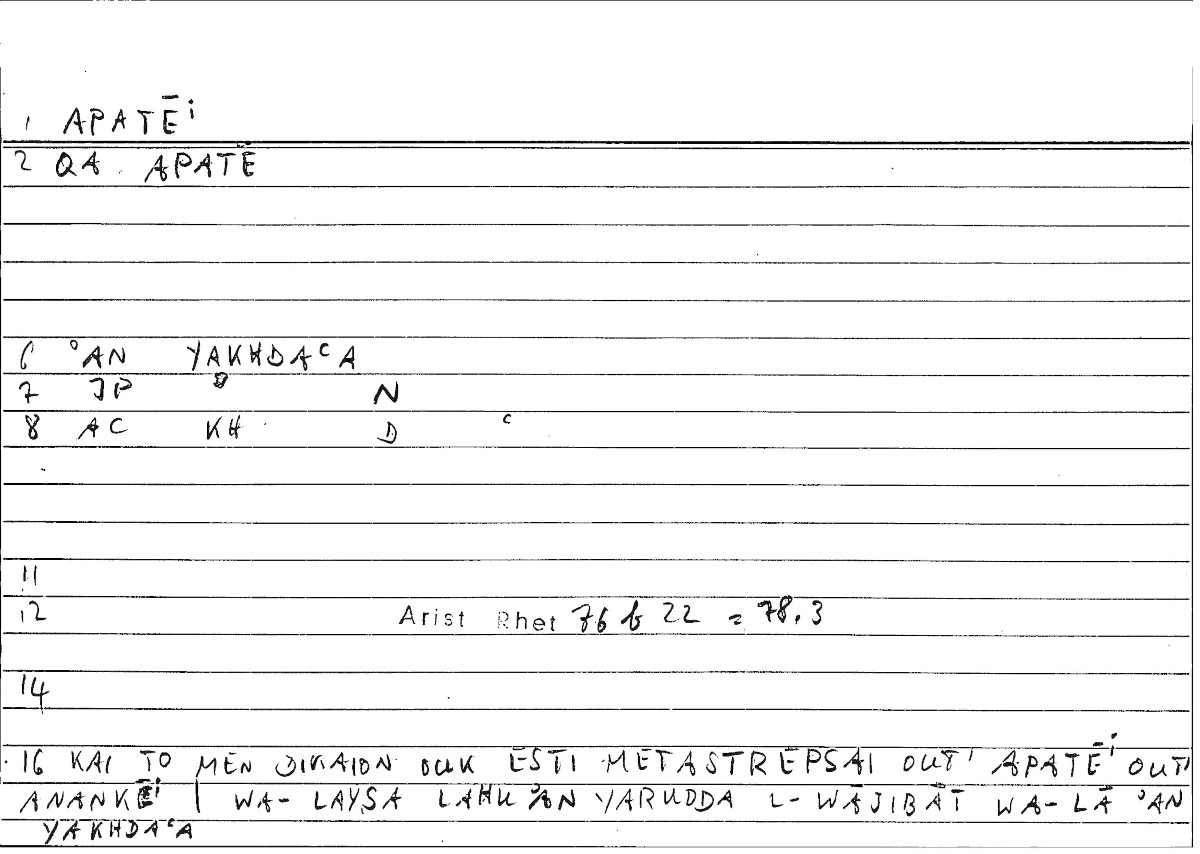 1 APATĒⁱ
2 QA. APATĒ
6 °AN YAKHDAᶜA
7 JP N
8 AC KH D ᶜ
11
12 Arist Rhet 76 b 22 = 78.3
14
16 KAI TO MEN DIKAION OUK ESTI METASTREPSAI OUT' APATĒⁱ OUT'
ANANKĒⁱ | WA- LAYSA LAHU °AN YARUDDA L-WĀJIBĀT WA-LĀ °AN
YAKHDAᶜA